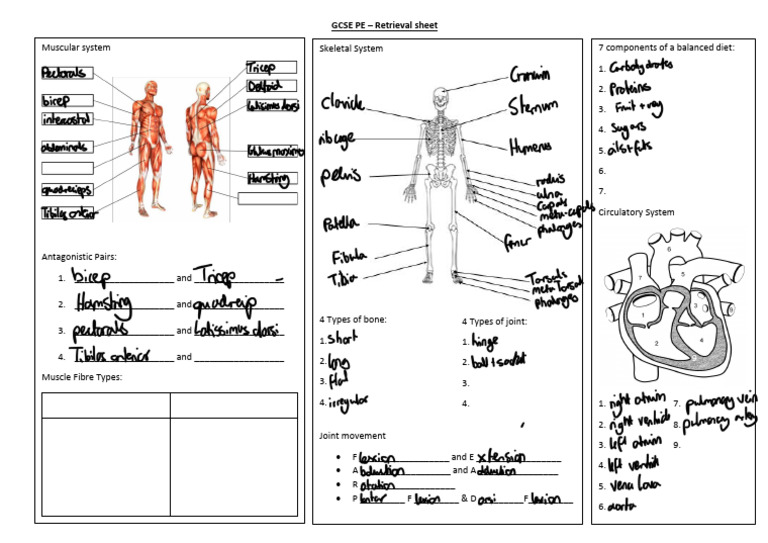 GCSE PE – Retrieval sheet
Muscular system
Pectorals
bicep
intercostal
abdominals
quadreceps
Tibilas anterior
Tricep
Deltoid
Latisimus dorsi
Gluteus maximus
Hamstring
Antagonistic Pairs:
1. bicep and Tricep
2. Hamstring and quadreicep
3. pectorals and Latissimus dorsi
4. Tibilas anterior and
Muscle Fibre Types:
Skeletal System
Clavicle
ribcage
pelvis
Patella
Fibula
Tibia
Cranium
Sternum
Humerus
radius
ulna
Carpals
meta-carpals
phalanges
femur
Tarsals
meta Tarsal
phalanges
4 Types of bone:
1. short
2. long
3. flat
4. irregular
4 Types of joint:
1. hinge
2. ball + socket
3.
4.
Joint movement
• Flexion and Extension
• Abduction and Adduction
• Rotation
• Plantar Flexion & Dorsi Flexion
7 components of a balanced diet:
1. Carbohydrates
2. Proteins
3. Fruit + veg
4. Sugars
5. oils + fats
6.
7.
Circulatory System
6
7
5
1
3
2
4
1. right atrium
2. right ventricle
3. left atrium
4. left ventricle
5. vena cava
6. aorta
7. pulmonary vein
8. pulmonary artery
9.